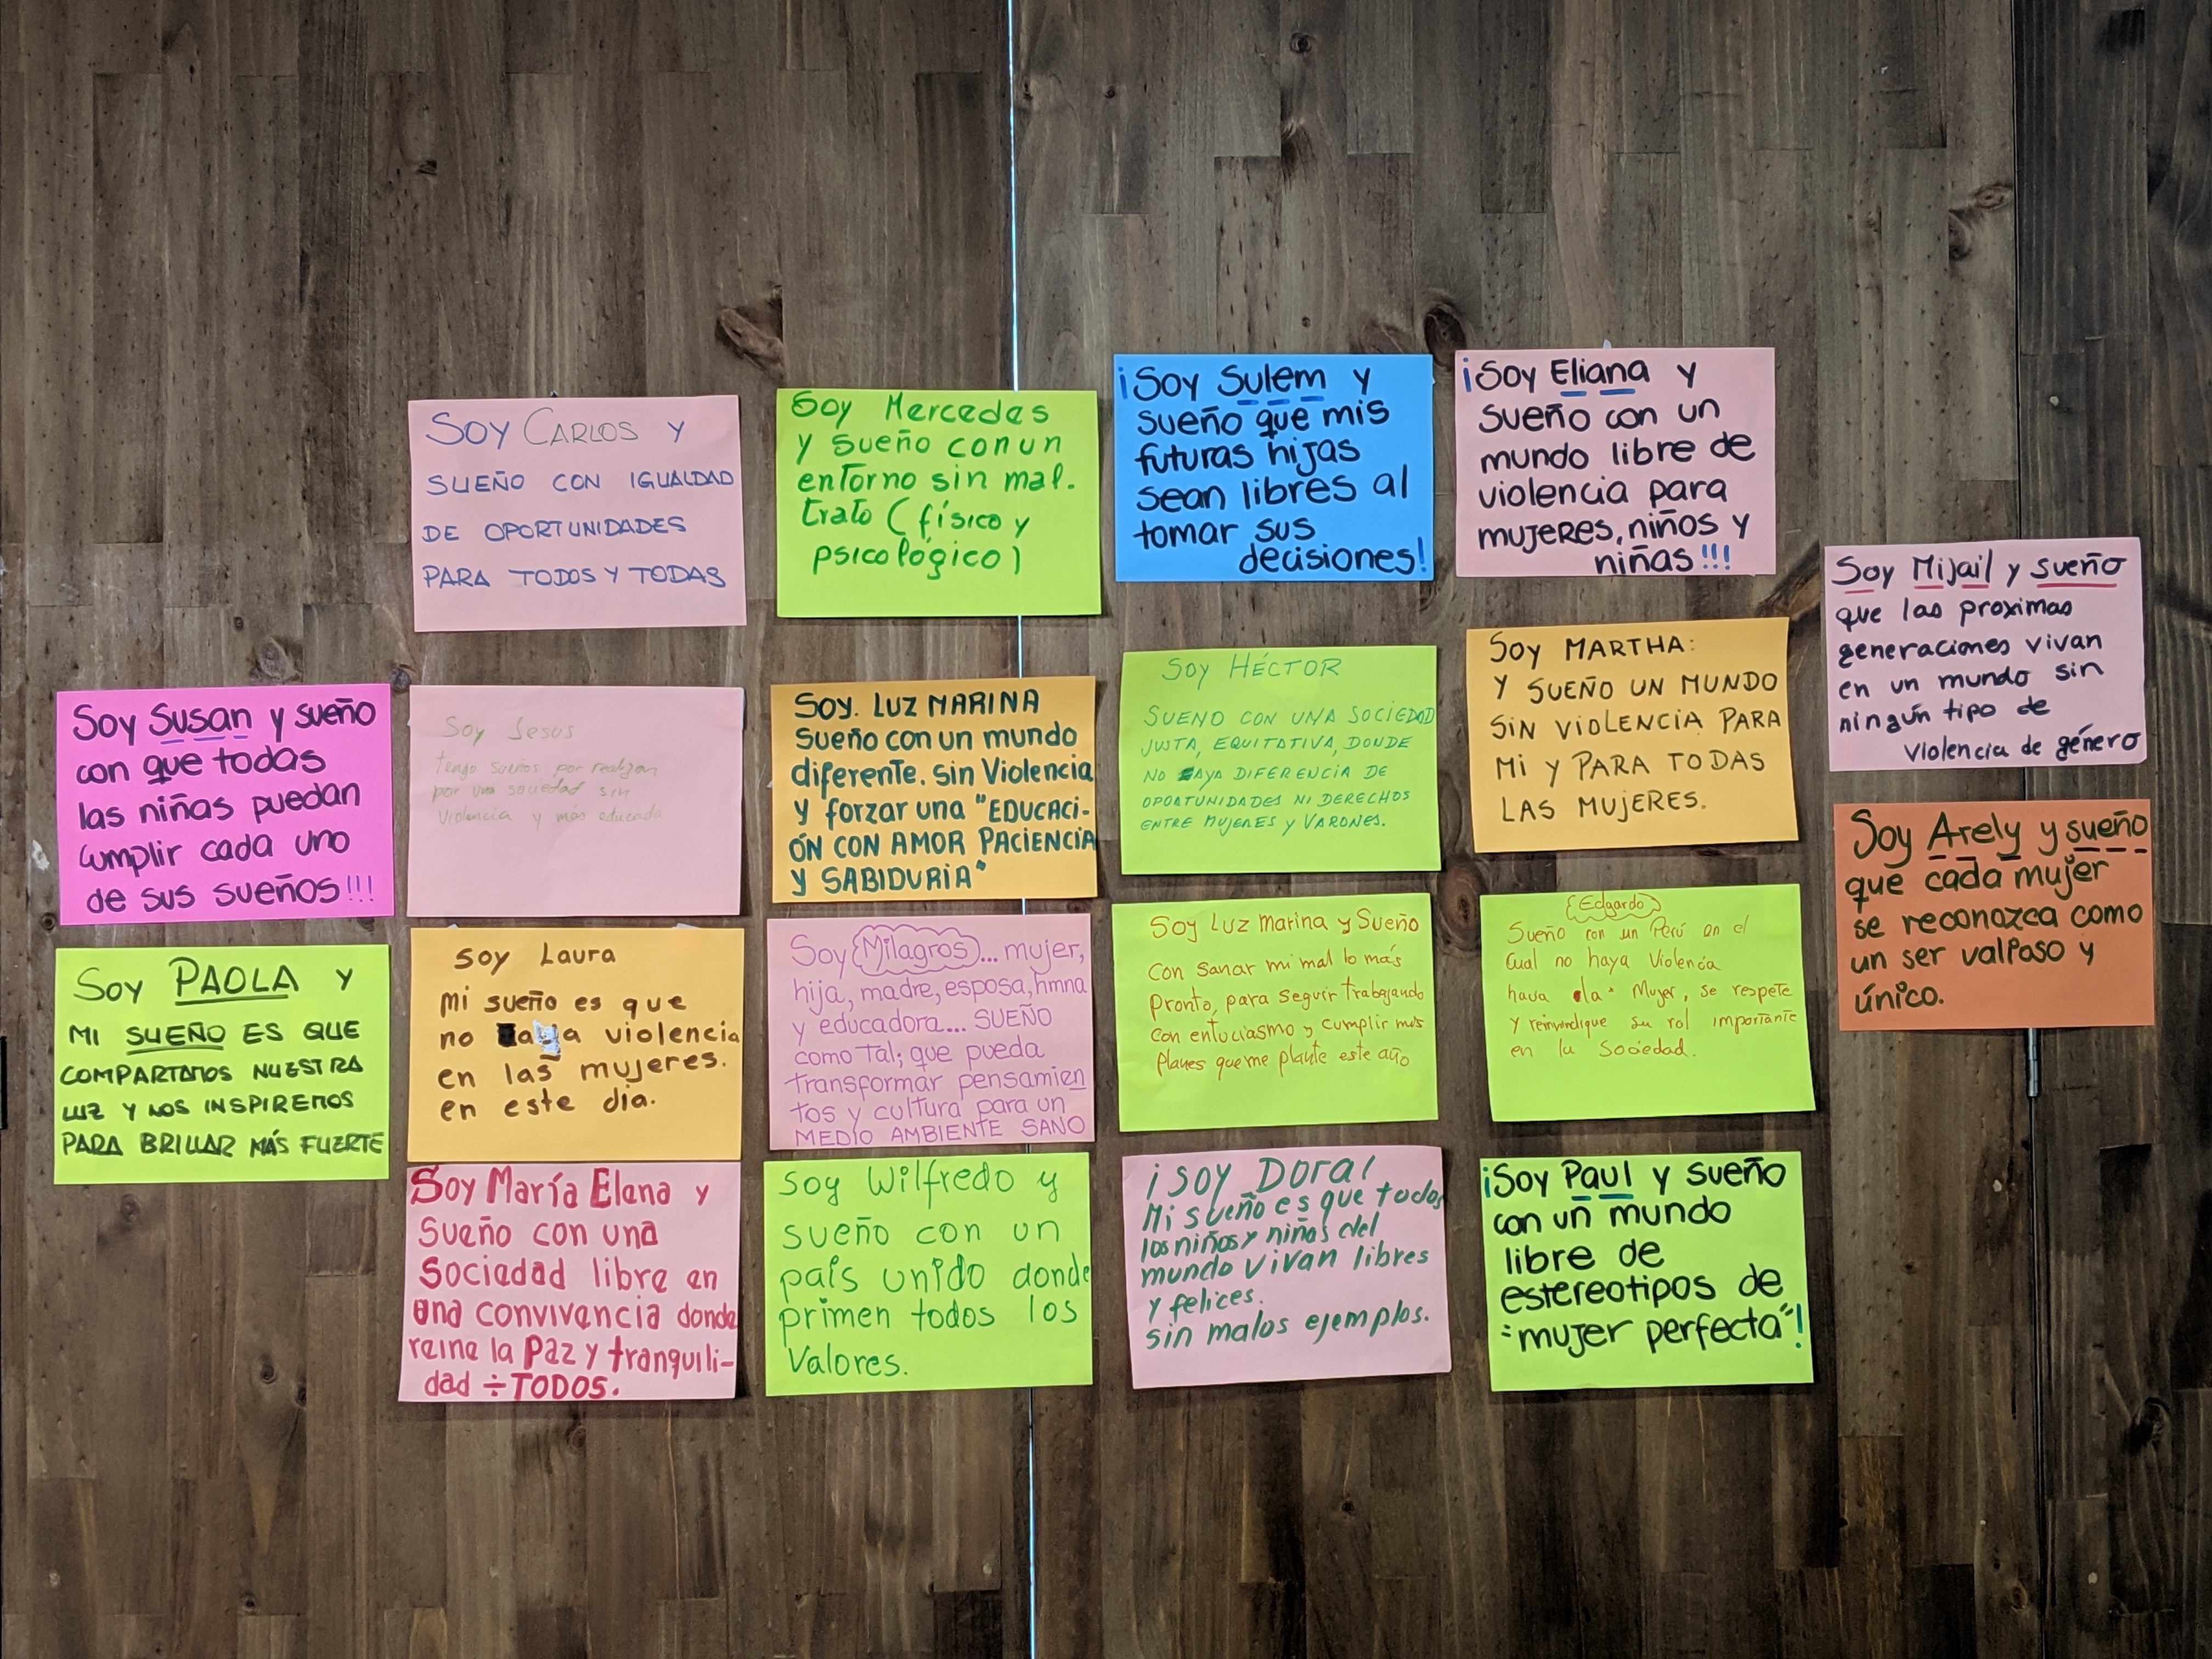 Soy CARLOS y
SUEÑO CON IGUALDAD
DE OPORTUNIDADES
PARA TODOS Y TODAS
Soy Mercedes
y sueño con un
entorno sin mal.
trato (físico y
psicológico)
¡Soy Sulem y
sueño que mis
futuras hijas
sean libres al
tomar sus
decisiones!
¡Soy Eliana y
sueño con un
mundo libre de
violencia para
mujeres, niños y
niñas!!!
Soy Mijail y sueño
que las proximas
generaciones vivan
en un mundo sin
ningún tipo de
violencia de género
Soy Susan y sueño
con que todas
las niñas puedan
cumplir cada uno
de sus sueños!!!
Soy Jesus
tengo sueños por realizar
por una sociedad sin
violencia y más educada
SOY. LUZ MARINA
sueño con un mundo
diferente. sin Violencia
y forzar una "EDUCACI-
ÓN CON AMOR PACIENCIA
Y SABIDURIA"
SOY HÉCTOR
SUENO CON UNA SOCIEDAD
JUSTA, EQUITATIVA, DONDE
NO HAYA DIFERENCIA DE
OPORTUNIDADES NI DERECHOS
ENTRE MUJERES Y VARONES.
SOY MARTHA:
Y SUEÑO UN MUNDO
SIN VIOLENCIA PARA
MI Y PARA TODAS
LAS MUJERES.
Soy Arely y sueño
que cada mujer
se reconozca como
un ser valioso y
único.
Soy PAOLA y
MI SUEÑO ES QUE
COMPARTAMOS NUESTRA
LUZ Y NOS INSPIREMOS
PARA BRILLAR MÁS FUERTE
Soy Laura
mi sueño es que
no haya violencia
en las mujeres.
en este dia.
Soy Milagros... mujer,
hija, madre, esposa, hmna
y educadora... SUEÑO
como tal; que pueda
transformar pensamien
tos y cultura para un
MEDIO AMBIENTE SANO
Soy Luz marina y Sueño
con sanar mi mal lo más
pronto, para seguir trabajando
con entuciasmo y cumplir mis
planes que me plante este año
(Edgardo)
Sueño con un Perú en el
cual no haya violencia
hacia la Mujer, se respete
y reinvindique su rol importante
en la Sociedad.
Soy María Elena y
Sueño con una
Sociedad libre en
una convivencia donde
reine la Paz y tranquili-
dad ÷ TODOS.
Soy Wilfredo y
sueño con un
país unido donde
primen todos los
Valores.
¡SOY Dora!
Mi sueño es que todos
los niños y niñas del
mundo vivan libres
y felices.
sin malos ejemplos.
¡Soy Paul y sueño
con un mundo
libre de
estereotipos de
"mujer perfecta"!